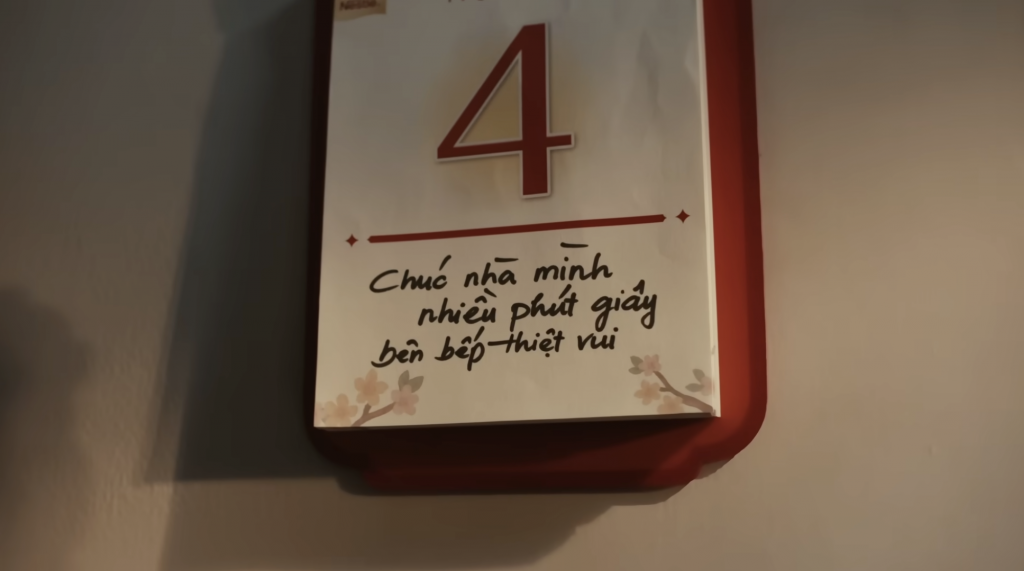 Nestlé
4
Chúc nhà mình
nhiều phút giây
bên bếp thiệt vui